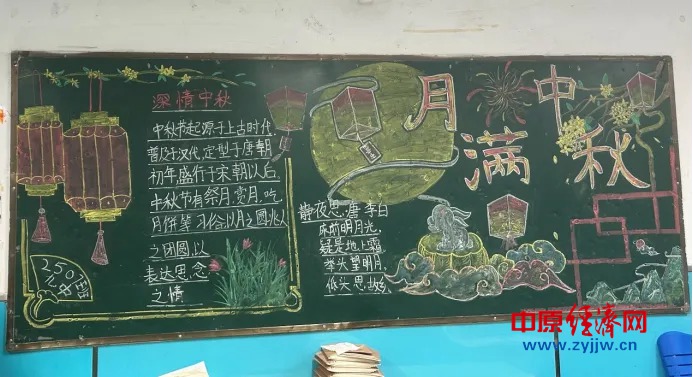 深情中秋
中秋节起源于上古时代
普及于汉代,定型于唐朝
初年,盛行于宋朝以后
中秋节有祭月,赏月,吃
月饼等习俗以月之圆兆人
之团圆,以
表达思念
之情
250
月满中秋
静夜思·唐·李白
床前明月光,
疑是地上霜
举头望明月,
低头思故乡
中原经济网
www.zyjjw.cn